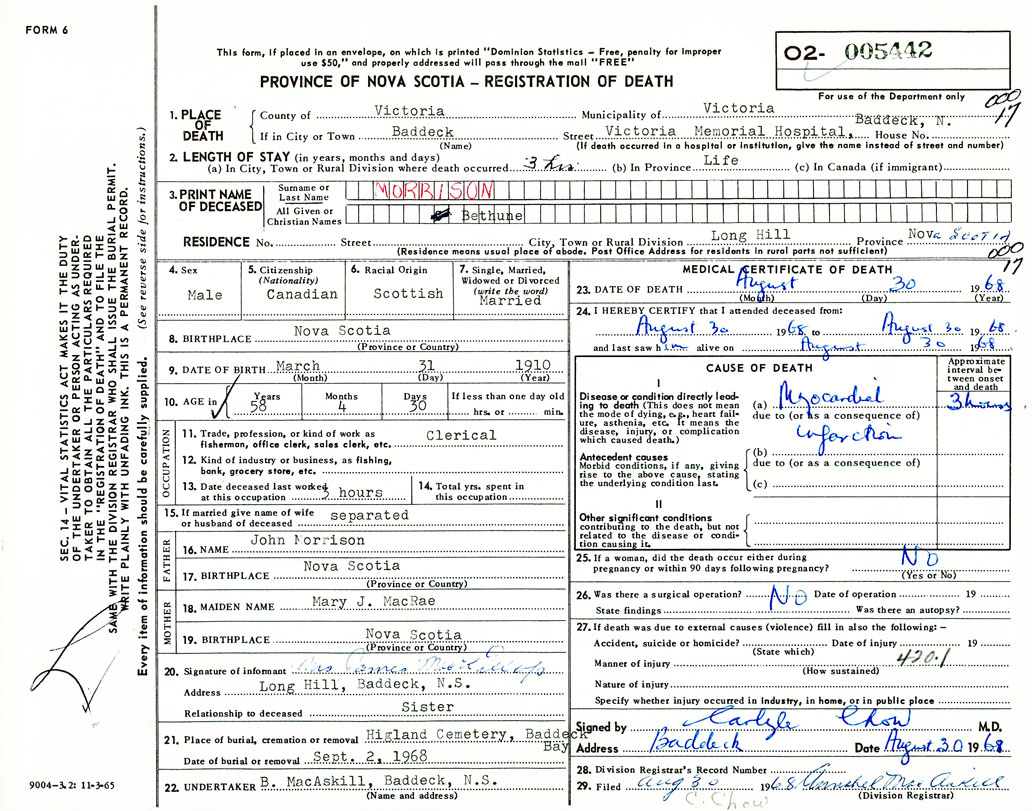 FORM 6
This form, if placed in an envelope, on which is printed "Dominion Statistics – Free, penalty for improper
use $50," and properly addressed will pass through the mail "FREE"
PROVINCE OF NOVA SCOTIA – REGISTRATION OF DEATH
O2- 005442
For use of the Department only
000
17
1. PLACE OF DEATH
County of Victoria Municipality of Victoria
If in City or Town Baddeck Street Victoria Memorial Hospital, Baddeck, N. House No.
(Name) (If death occurred in a hospital or institution, give the name instead of street and number)
2. LENGTH OF STAY (in years, months and days)
(a) In City, Town or Rural Division where death occurred 3 hrs. (b) In Province Life (c) In Canada (if immigrant)
3. PRINT NAME OF DECEASED
Surname or Last Name MORRISON
All Given or Christian Names Bethune
RESIDENCE No. Street City, Town or Rural Division Long Hill Province Nova Scotia
(Residence means usual place of abode. Post Office Address for residents in rural parts not sufficient)
000
17
4. Sex
Male
5. Citizenship
(Nationality)
Canadian
6. Racial Origin
Scottish
7. Single, Married,
Widowed or Divorced
(write the word)
Married
8. BIRTHPLACE Nova Scotia
(Province or Country)
9. DATE OF BIRTH March 31 1910
(Month) (Day) (Year)
10. AGE in Years Months Days If less than one day old
58 4 30 hrs. or min.
OCCUPATION
11. Trade, profession, or kind of work as Clerical
fisherman, office clerk, sales clerk, etc.
12. Kind of industry or business, as fishing,
bank, grocery store, etc.
13. Date deceased last worked
at this occupation 3 hours
14. Total yrs. spent in
this occupation
15. If married give name of wife
or husband of deceased separated
FATHER
16. NAME John Morrison
17. BIRTHPLACE Nova Scotia
(Province or Country)
MOTHER
18. MAIDEN NAME Mary J. MacRae
19. BIRTHPLACE Nova Scotia
(Province or Country)
20. Signature of informant Mrs James MacKillop
Address Long Hill, Baddeck, N.S.
Relationship to deceased Sister
21. Place of burial, cremation or removal Higland Cemetery, Baddeck
Bay
Date of burial or removal Sept. 2, 1968
22. UNDERTAKER B. MacAskill, Baddeck, N.S.
(Name and address)
MEDICAL CERTIFICATE OF DEATH
23. DATE OF DEATH August 30 1968
(Month) (Day) (Year)
24. I HEREBY CERTIFY that I attended deceased from:
August 30 1968 to August 30 1968
and last saw him alive on August 30 1968
CAUSE OF DEATH
Approximate
interval be-
tween onset
and death
I
Disease or condition directly lead-
ing to death (This does not mean
the mode of dying, e.g., heart fail-
ure, asthenia, etc. It means the
disease, injury, or complication
which caused death.)
(a) Myocardial 3 hours
due to (or as a consequence of)
infarction
Antecedent causes
Morbid conditions, if any, giving
rise to the above cause, stating
the underlying condition last.
(b)
due to (or as a consequence of)
(c)
II
Other significant conditions
contributing to the death, but not
related to the disease or condi-
tion causing it.
25. If a woman, did the death occur either during
pregnancy or within 90 days following pregnancy? NO
(Yes or No)
26. Was there a surgical operation? NO Date of operation 19
State findings Was there an autopsy?
27. If death was due to external causes (violence) fill in also the following: –
Accident, suicide or homicide? Date of injury 19
(State which) 420.1
Manner of injury
(How sustained)
Nature of injury
Specify whether injury occurred in industry, in home, or in public place
Signed by Carlyle Chow M.D.
Address Baddeck Date August 30 1968
28. Division Registrar's Record Number
29. Filed Aug 30 1968
(Division Registrar)
C. Chow
SEC. 14 – VITAL STATISTICS ACT MAKES IT THE DUTY
OF THE UNDERTAKER OR PERSON ACTING AS UNDER-
TAKER TO OBTAIN ALL THE PARTICULARS REQUIRED
IN THE "REGISTRATION OF DEATH" AND TO FILE THE
SAME WITH THE DIVISION REGISTRAR WHO SHALL ISSUE THE BURIAL PERMIT.
WRITE PLAINLY WITH UNFADING INK. THIS IS A PERMANENT RECORD.
Every item of information should be carefully supplied. (See reverse side for instructions.)
9004–3.2: 11-3-65